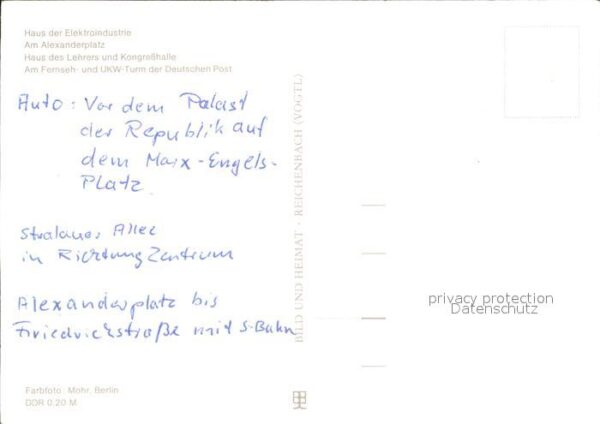 Haus der Elektroindustrie
Am Alexanderplatz
Haus des Lehrers und Kongreßhalle
Am Fernseh- und UKW-Turm der Deutschen Post
Auto: Vor dem Palast
der Republik auf
dem Marx-Engels-
Platz
Stralauer Allee
in Richtung Zentrum
Alexanderplatz bis
Friedrichstraße mit S-Bahn
BILD UND HEIMAT · REICHENBACH (VOGTL)
privacy protection
Datenschutz
Farbfoto: Mohr, Berlin
DDR 0.20 M